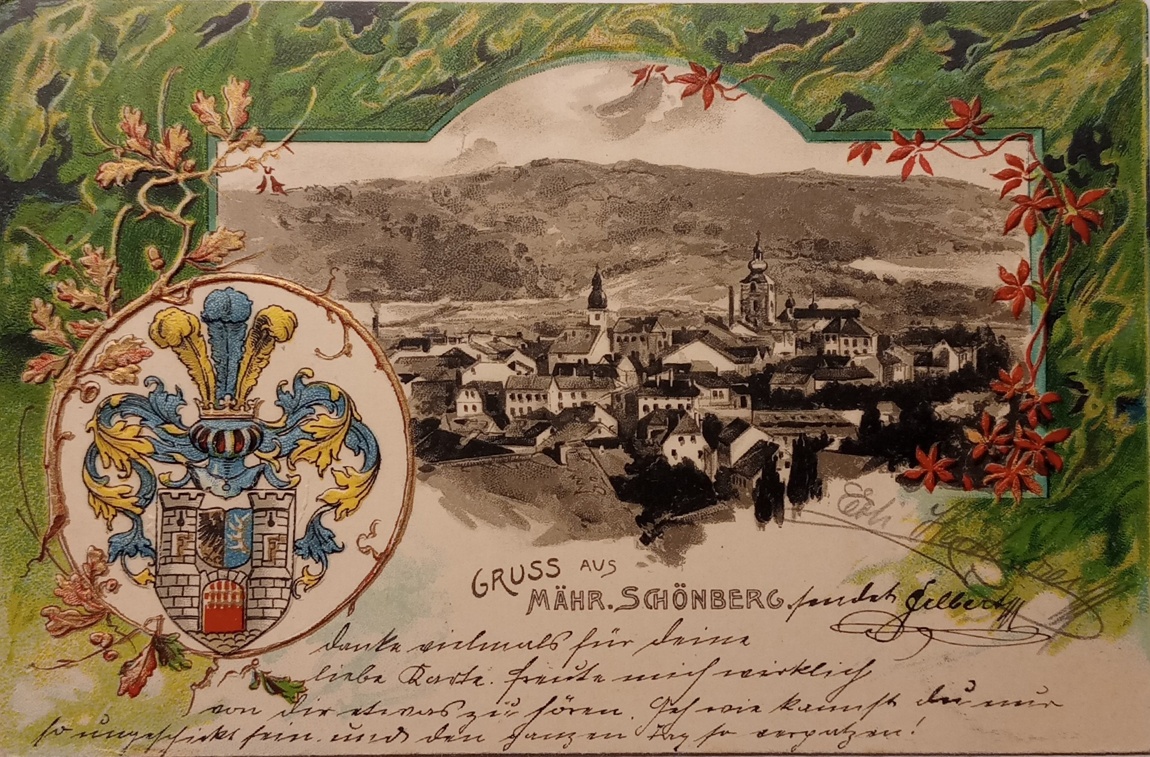 GRUSS AUS
MÄHR. SCHÖNBERG. sendet Gilbert
danke vielmals für deine
liebe Karte. freute mich wirklich
von dir etwas zu hören. Geh wie kannst du nur
so ungeschickt sein. und den ganzen Tag so verpatzen!